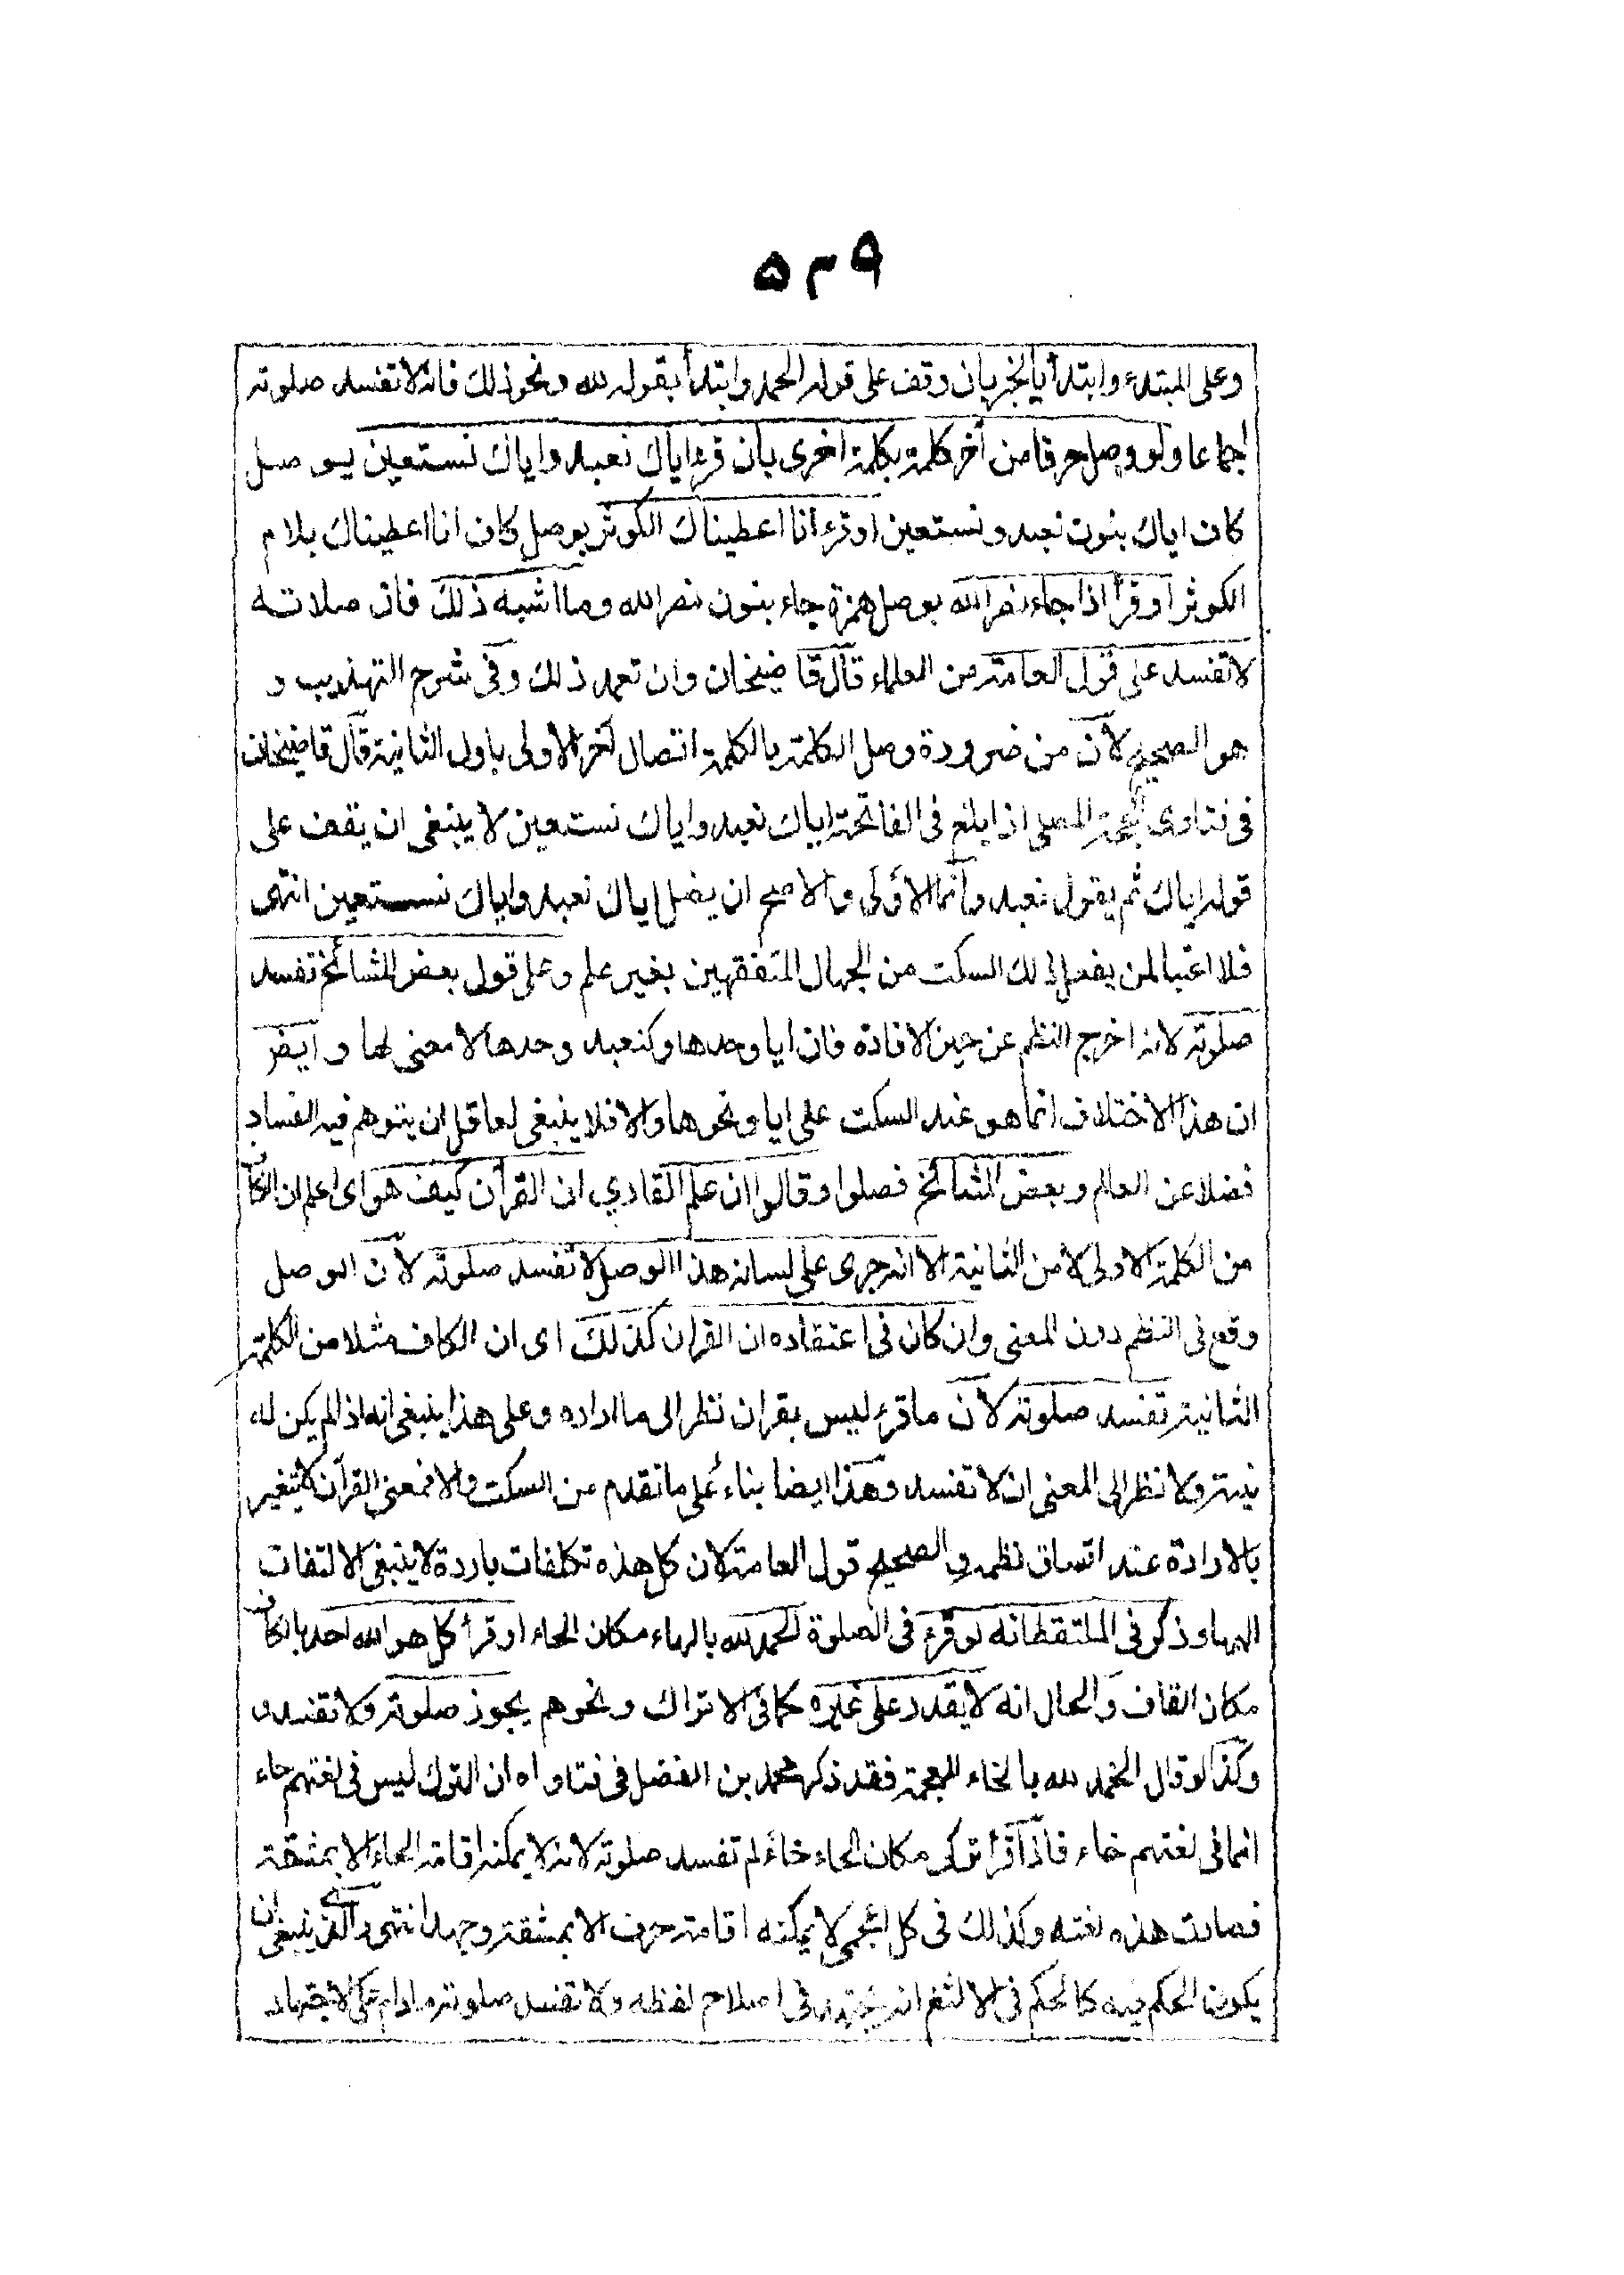 ٥٣٩
وعلى المبتدء وابتدأ بالخبر بان وقف على قوله الحمد وابتدأ بقوله لله ونحو ذلك فانه لا تفسد صلوته
اجماعا ولو وصل حرفا من أخر كلمة بكلمة اخرى بأن قرء اياك نعبد واياك نستعين يوصل
كاف اياك بنون نعبد ونستعين او قرء انا اعطيناك الكوثر بوصل كاف انا اعطيناك بلام
الكوثر او قرأ اذا جاء نصر الله بوصل همزة جاء بنون نصر الله وما اشبه ذلك فان صلاته
لا تفسد على قول العامة من العلماء قال قاضيخان وان تعمد ذلك وفى شرح التهذيب و
هو الصحيح لأن من ضرورة وصل الكلمة بالكلمة اتصال أخر الاولى باول الثانية قال قاضيخان
فى فتاوى الحجة المصلى اذا بلغ فى الفاتحة اياك نعبد واياك نستعين لا ينبغى ان يقف على
قوله اياك ثم يقول نعبد وانما الأولى والاصح ان يصل اياك نعبد واياك نستعين انتهى
فلا اعتبا لمن يفعل ذلك السكت من الجهال المتفقهين بغير علم وعلى قول بعض المشائخ تفسد
صلوته لانه اخرج النظم عن حيز الافادة فان ايا وحدها وكنعبد وحدها لا معنى لها وايضر
ان هذا الاختلاف انما هو عند السكت على ايا ونحوها والا فلا ينبغى لعاقل ان يتوهم فيه الفساد
فضلا عن العالم وبعض المشائخ فصلوا وقالوا ان علم القاري ان القرأن كيف هو اى اعلم ان الكاف
من الكلمة الاولى لا من الثانية الا انه جرى على لسانه هذا الوصل لا تفسد صلوته لأن الوصل
وقع فى النظم دون المعنى وان كان فى اعتقاده ان القران كذلك اى ان الكاف مثلا من الكلمة
الثانية تفسد صلوته لأن ما قرء ليس بقران نظر الى ما اراده وعلى هذا ينبغى انه اذا لم يكن له
نية ولا نظر الى المعنى ان لا تفسد وهذا ايضا بناء على ما تقدم من السكت والا فمعنى القرآن لا يتغير
بالارادة عند اتساق نظمه والصحيح قول العامة لان كل هذه تكلفات باردة لا ينبغى الالتفات
اليها وذكر فى الملتقط انه لو قرء فى الصلوة الحمد لله بالهاء مكان الحاء او قرأ كل هو الله احد بالكاف
مكان القاف والحال انه لا يقدر على غيره كما فى الاتراك ونحوهم يجوز صلوته ولا تفسد
وكذا لو قال الخمد لله بالخاء المعجمة فقد ذكر محمد بن الفضل فى فتاواه ان الترك ليس فى لغتهم حاء
انما فى لغتهم خاء فاذا قرأ تركى مكان الحاء خاء لم تفسد صلوته لانه لا يمكنه اقامة الحاء الا بمشقة
فصارت هذه لغته وكذلك فى كل اعجمى لا يمكنه اقامة حرف الا بمشقة وجهد انتهى والذى ينبغى ان
يكون الحكم فيه كالحكم فى الالثغ انه يجتهد فى اصلاح لفظه ولا تفسد صلوته مادام على الاجتهاد